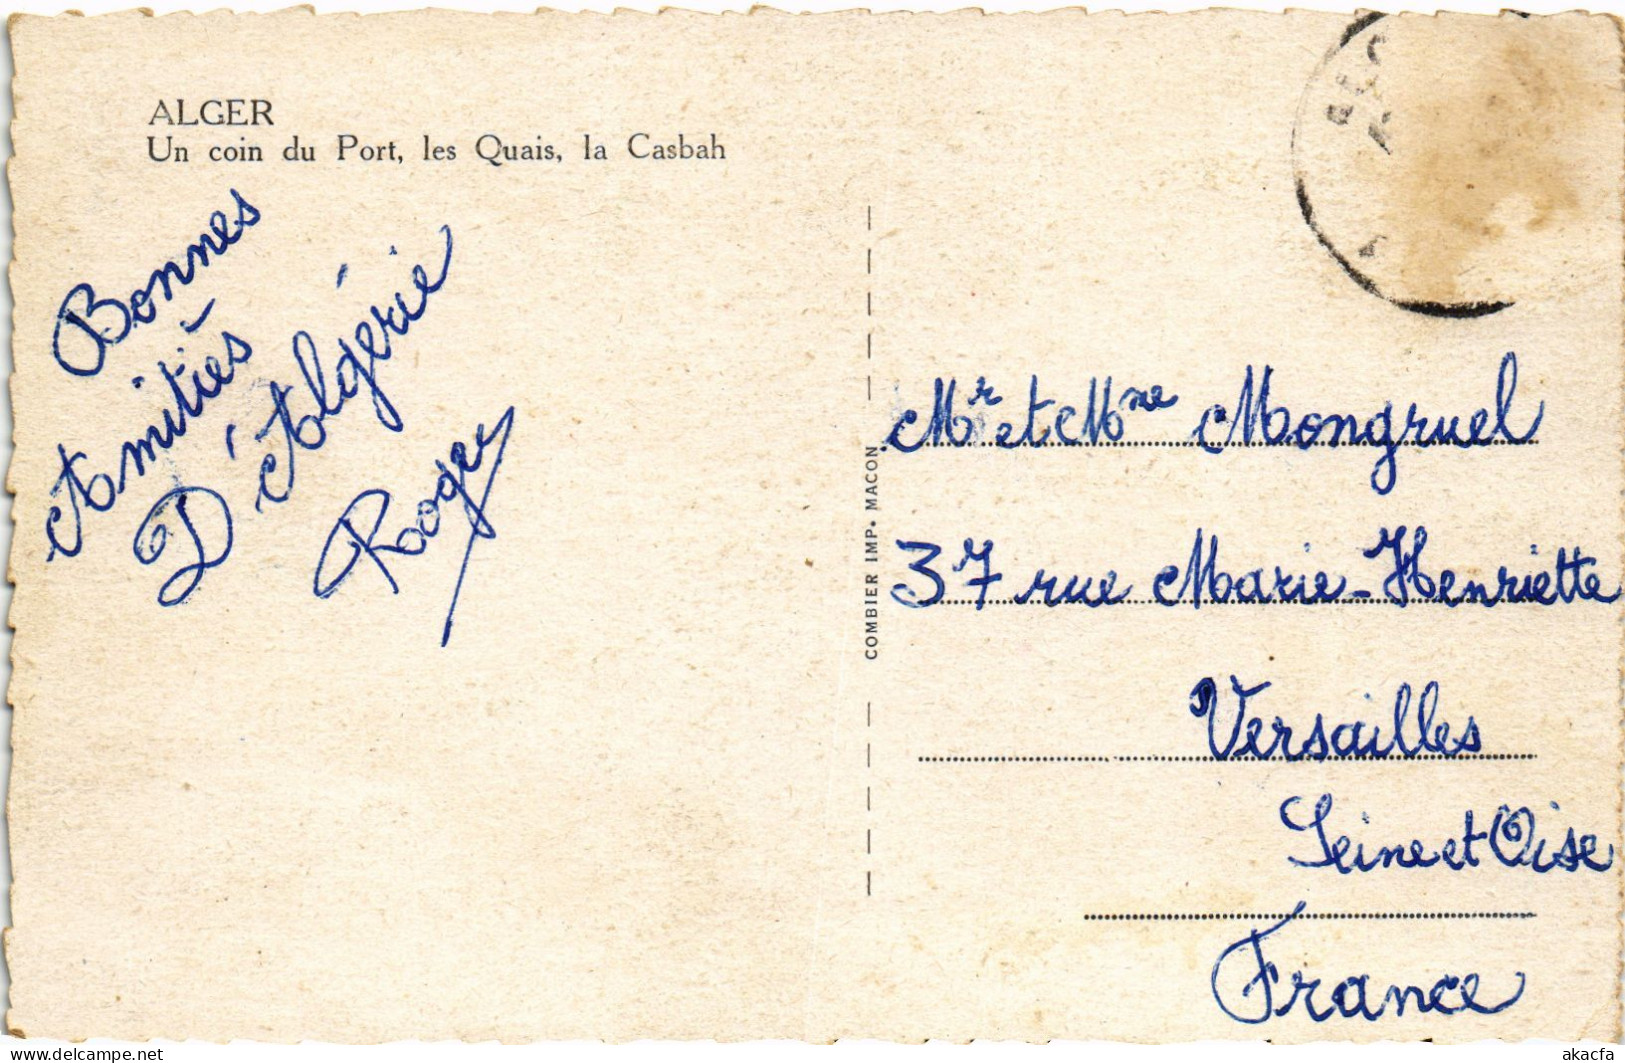 ALGER
Un coin du Port, les Quais, la Casbah
Bonnes
Amitiés
D'Algérie
Roger
COMBIER IMP. MACON
Mr et Mme Mongruel
37 rue Marie-Henriette
Versailles
Seine et Oise
France
akacfa